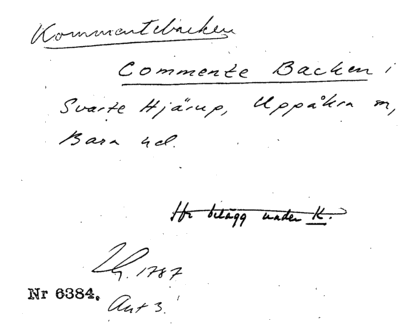 Kommentebacken
Commente Backen i
Svarte Hjärup, Uppåkra sn,
Bara hd.
Hr belägg under K.
Lh. 1787
Akt 3.
Nr 6384.